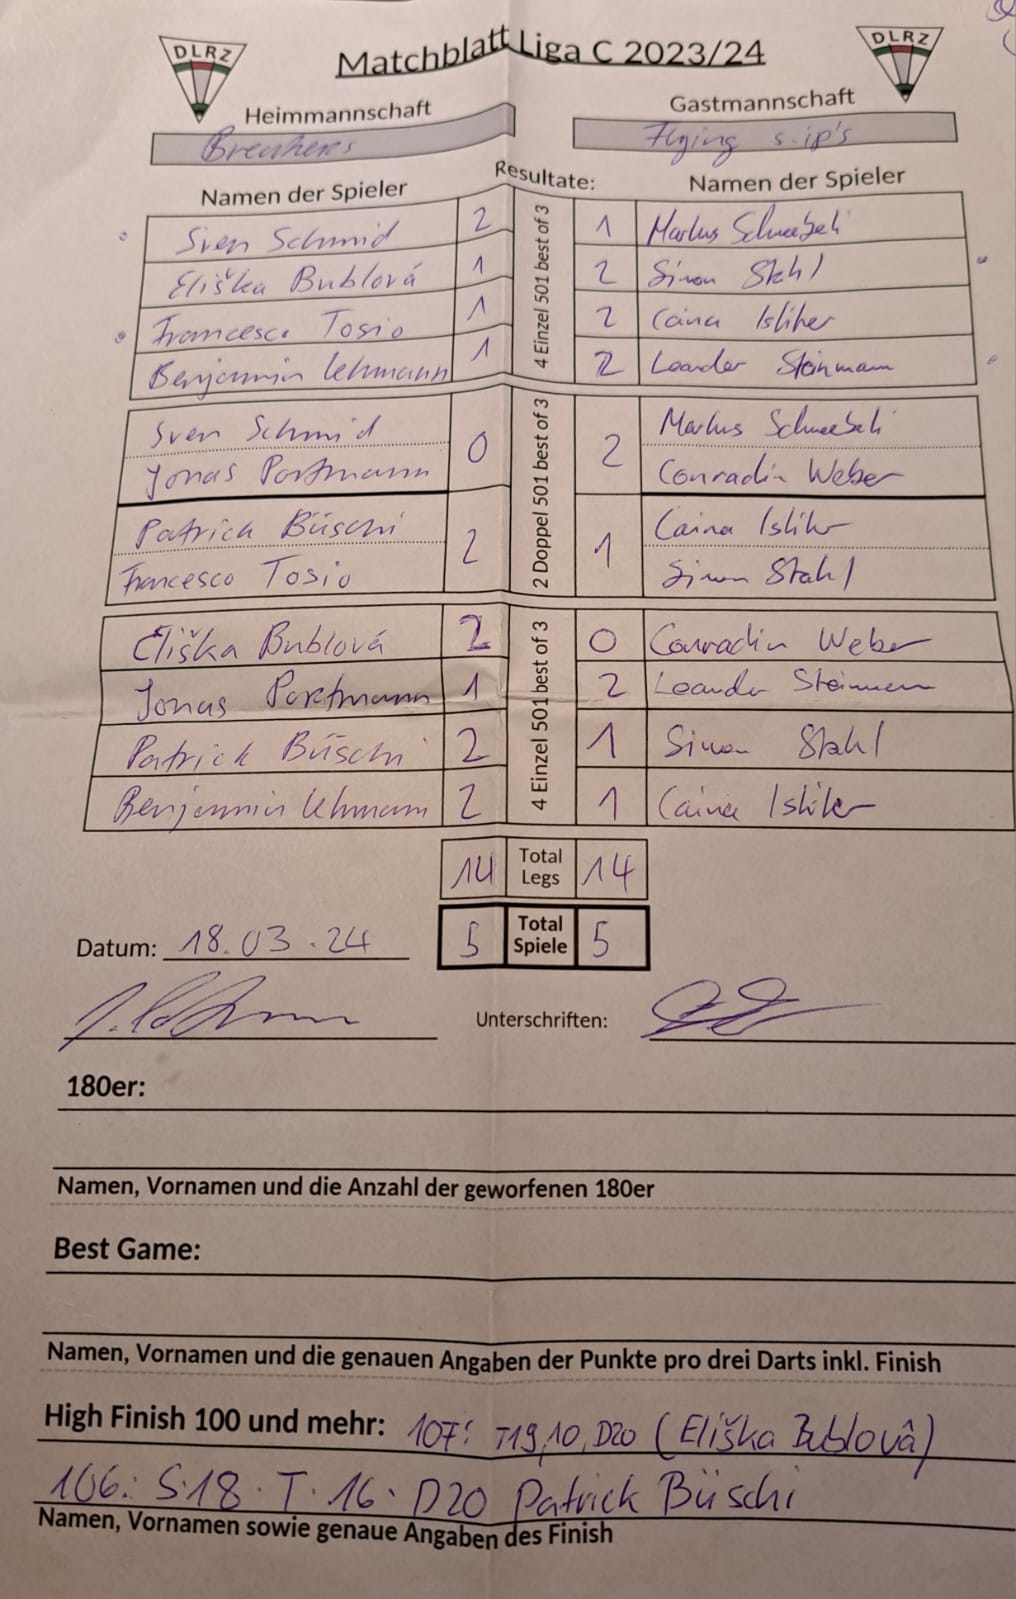 DLRZ Matchblatt Liga C 2023/24 DLRZ
Heimmannschaft Gastmannschaft
Breakers Flying
Namen der Spieler Resultate: Namen der Spieler
Sven Schmid 2 1 Markus Schneebeli
Eliška Bublová 1 2 Simon Stahl
Francesco Tosio 1 2 Caina Isliker
Benjamin Lehmann 1 2 Leander Steinmann
4 Einzel 501 best of 3
Sven Schmid 0 2 Markus Schneebeli
Jonas Portmann Conradin Weber
Patrick Büschi 2 1 Caina Isliker
Francesco Tosio Simon Stahl
2 Doppel 501 best of 3
Eliška Bublová 2 0 Conradin Weber
Jonas Portmann 1 2 Leander Steinmann
Patrick Büschi 2 1 Simon Stahl
Benjamin Lehmann 2 1 Caina Isliker
4 Einzel 501 best of 3
14 Total Legs 14
5 Total Spiele 5
Datum: 18.03.24
Unterschriften:
180er:
Namen, Vornamen und die Anzahl der geworfenen 180er
Best Game:
Namen, Vornamen und die genauen Angaben der Punkte pro drei Darts inkl. Finish
High Finish 100 und mehr: 107: T19, 10, D20 (Eliška Bublovâ)
106: S.18. T. 16. D20 Patrick Büschi
Namen, Vornamen sowie genaue Angaben des Finish